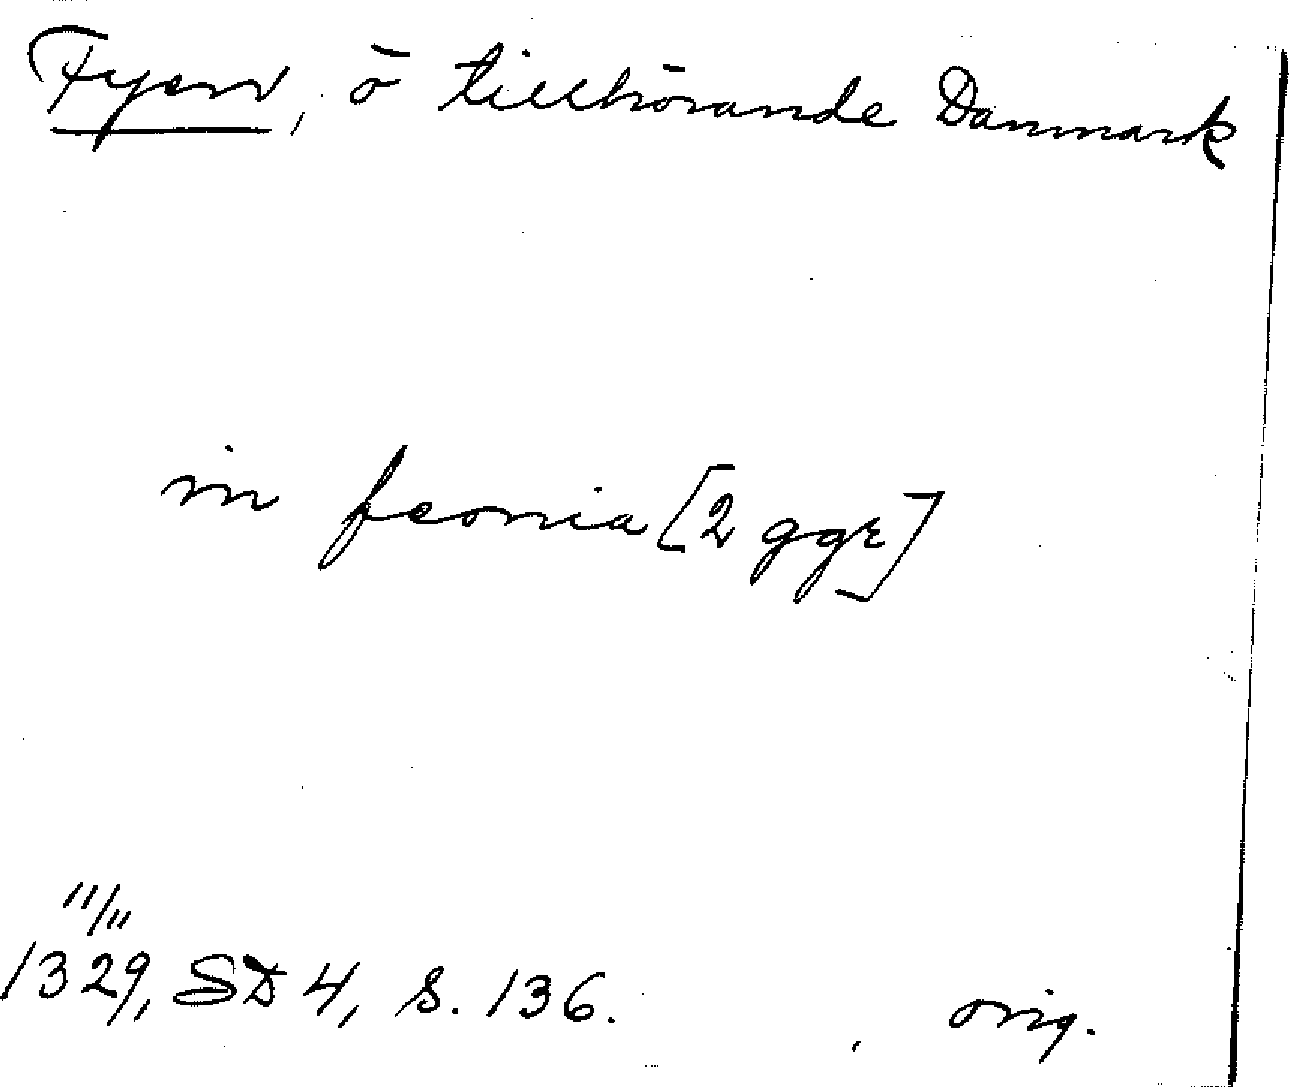 Fyen, ö tillhörande Danmark
in feonia [2 ggr]
11/11
1329, SD 4, s. 136.
orig.